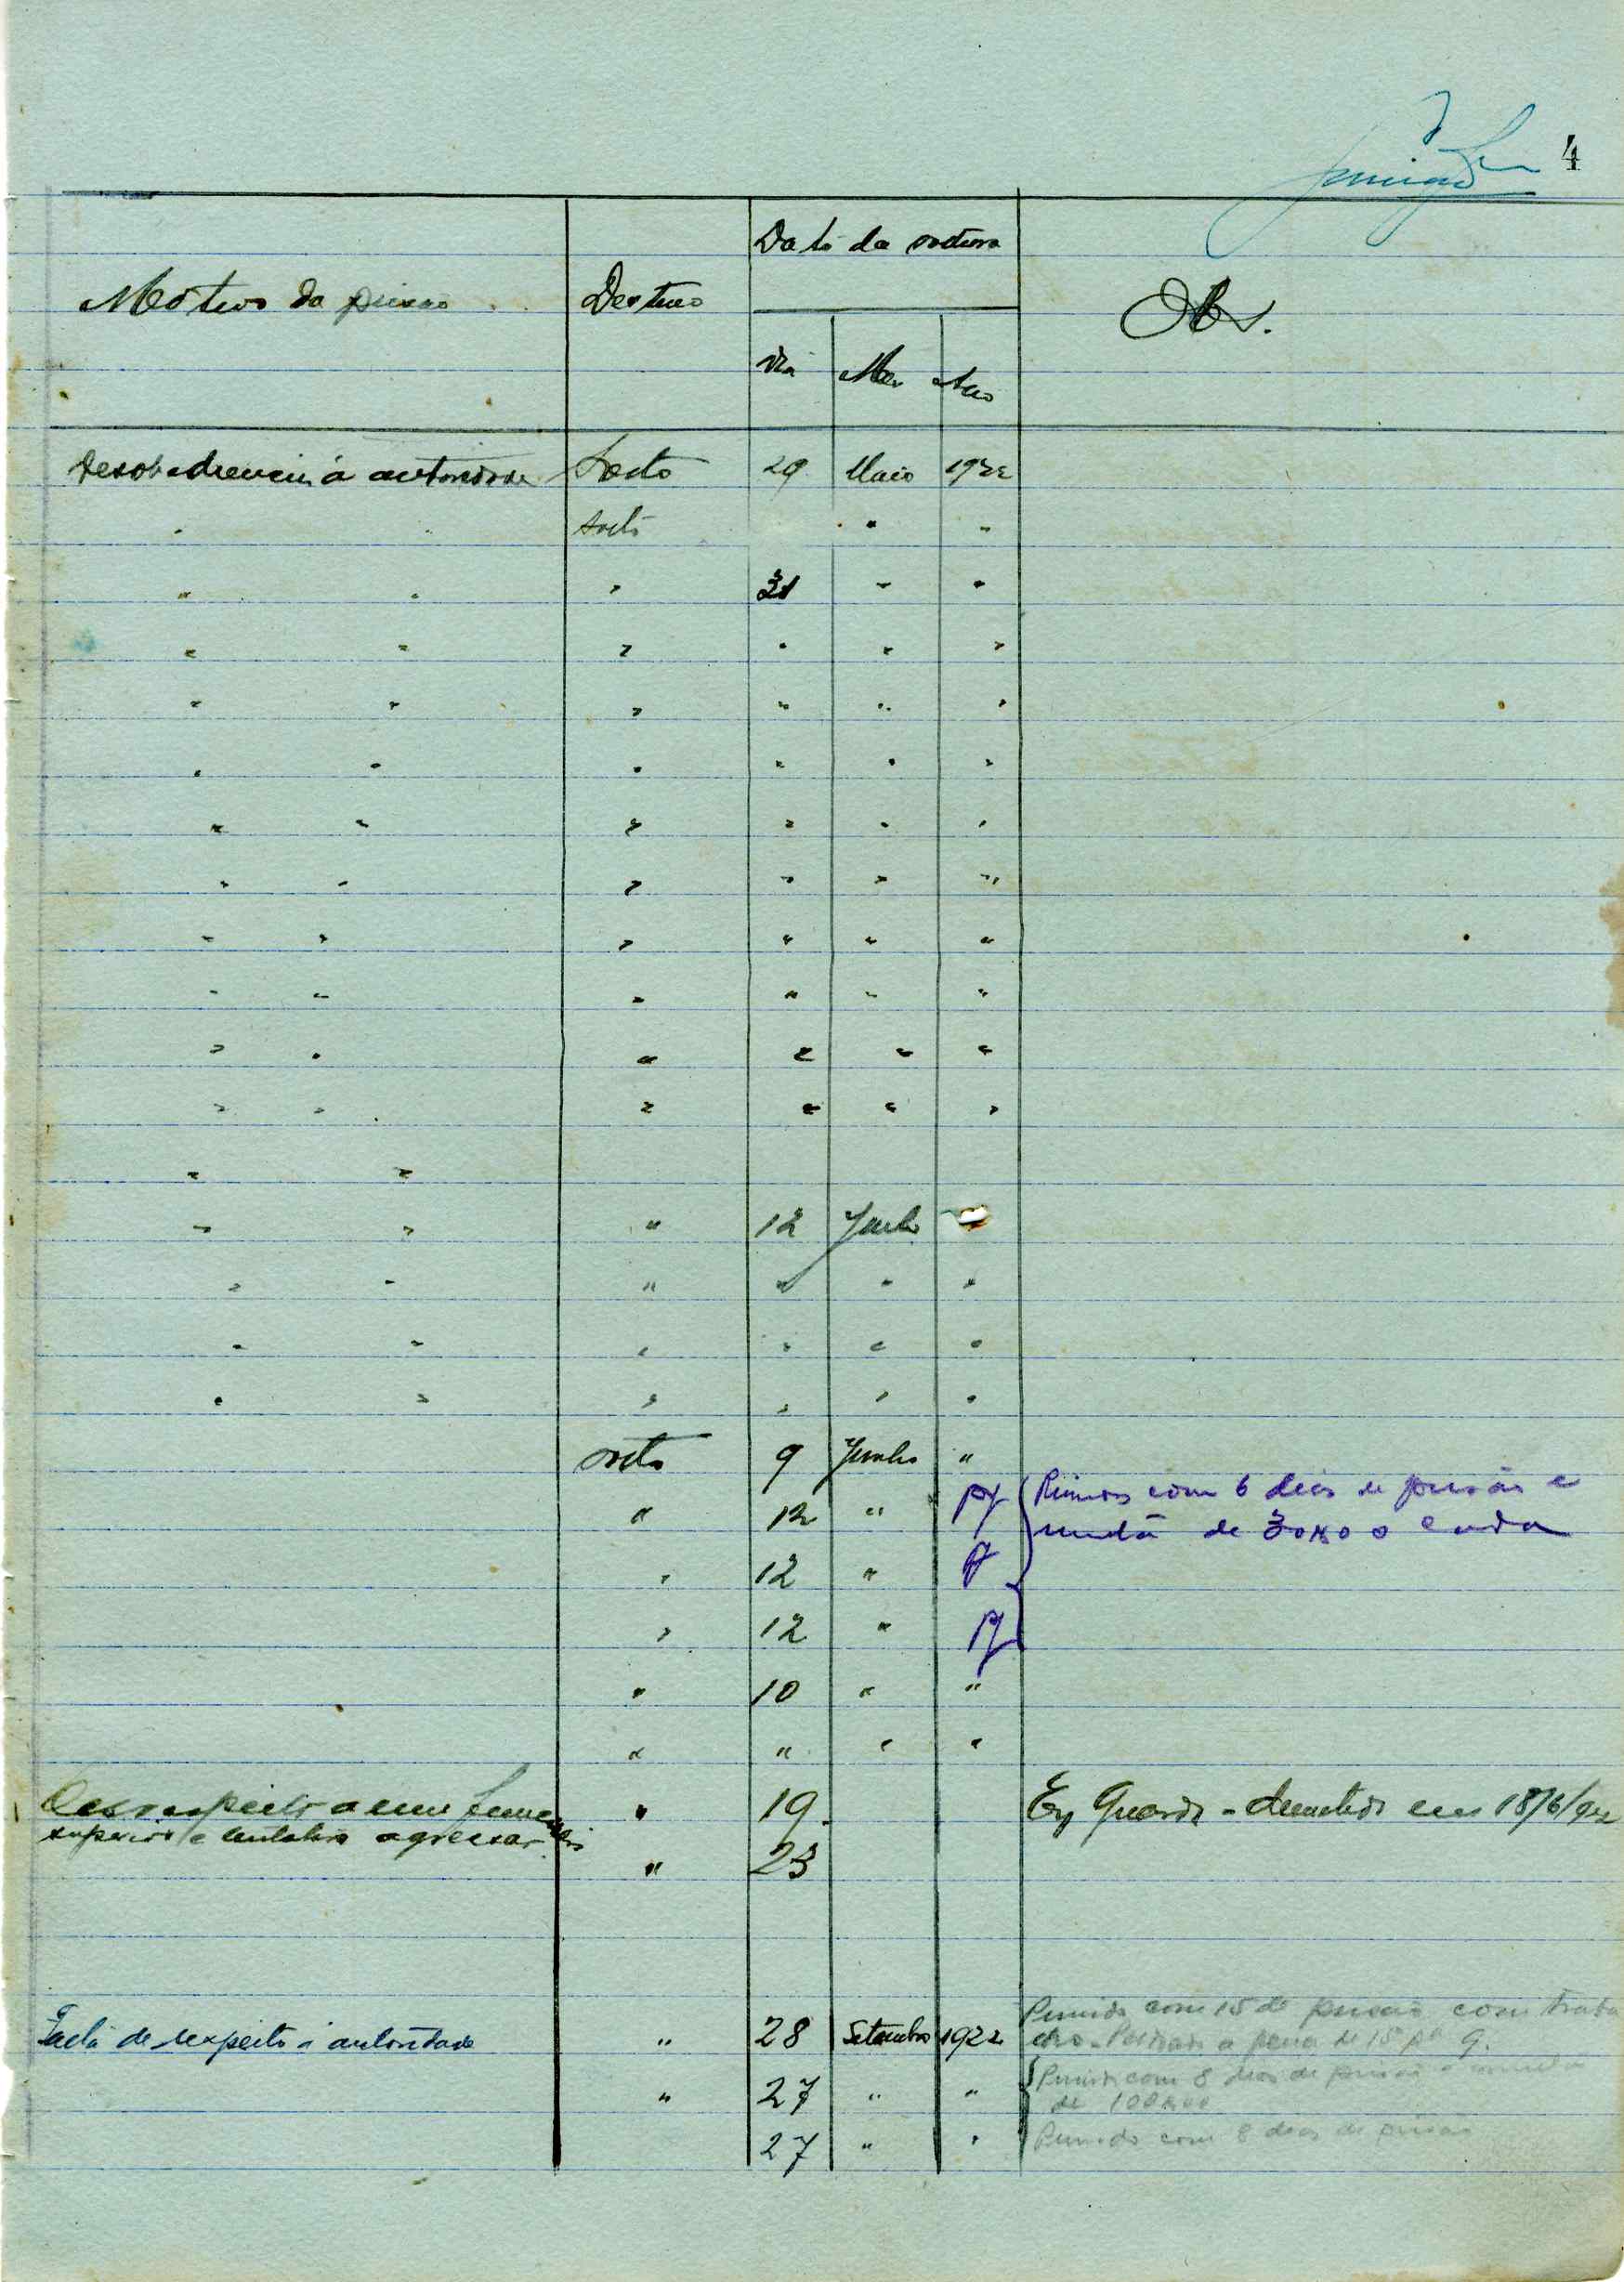 4
Data da soltura
Motivo da prisão Destino Obs.
Dia Mez Ano
Desobediencia á autoridade Solto 29 Maio 1922
" solto " "
" " " 31 " "
" " " " " "
" " " " " "
" " " " " "
" " " " " "
" " " " " "
" " " " " "
" " " " " "
" " " " " "
" " " " " "
" "
" " " 12 Junho
" " " " " "
" " " " " "
" " " " " "
solto 9 Junho "
" 12 " Punidos com 6 dias de prisão e
multa de 30$000 cada
" 12 "
" 12 "
" 10 " "
" " " "
Desrespeito a um " 19 Ex Guarda - demetido em 18/6/922
superior e tentativa agressão
" 23
Punido com 15 de prisão com traba
Falta de respeito á autoridade " 28 Setembro 1922 a pena de 15 pª 9.
" 27 " " Punido com 8 dias de prisão e multa
de 100$000
27 " " Punido com 8 dias de prisão